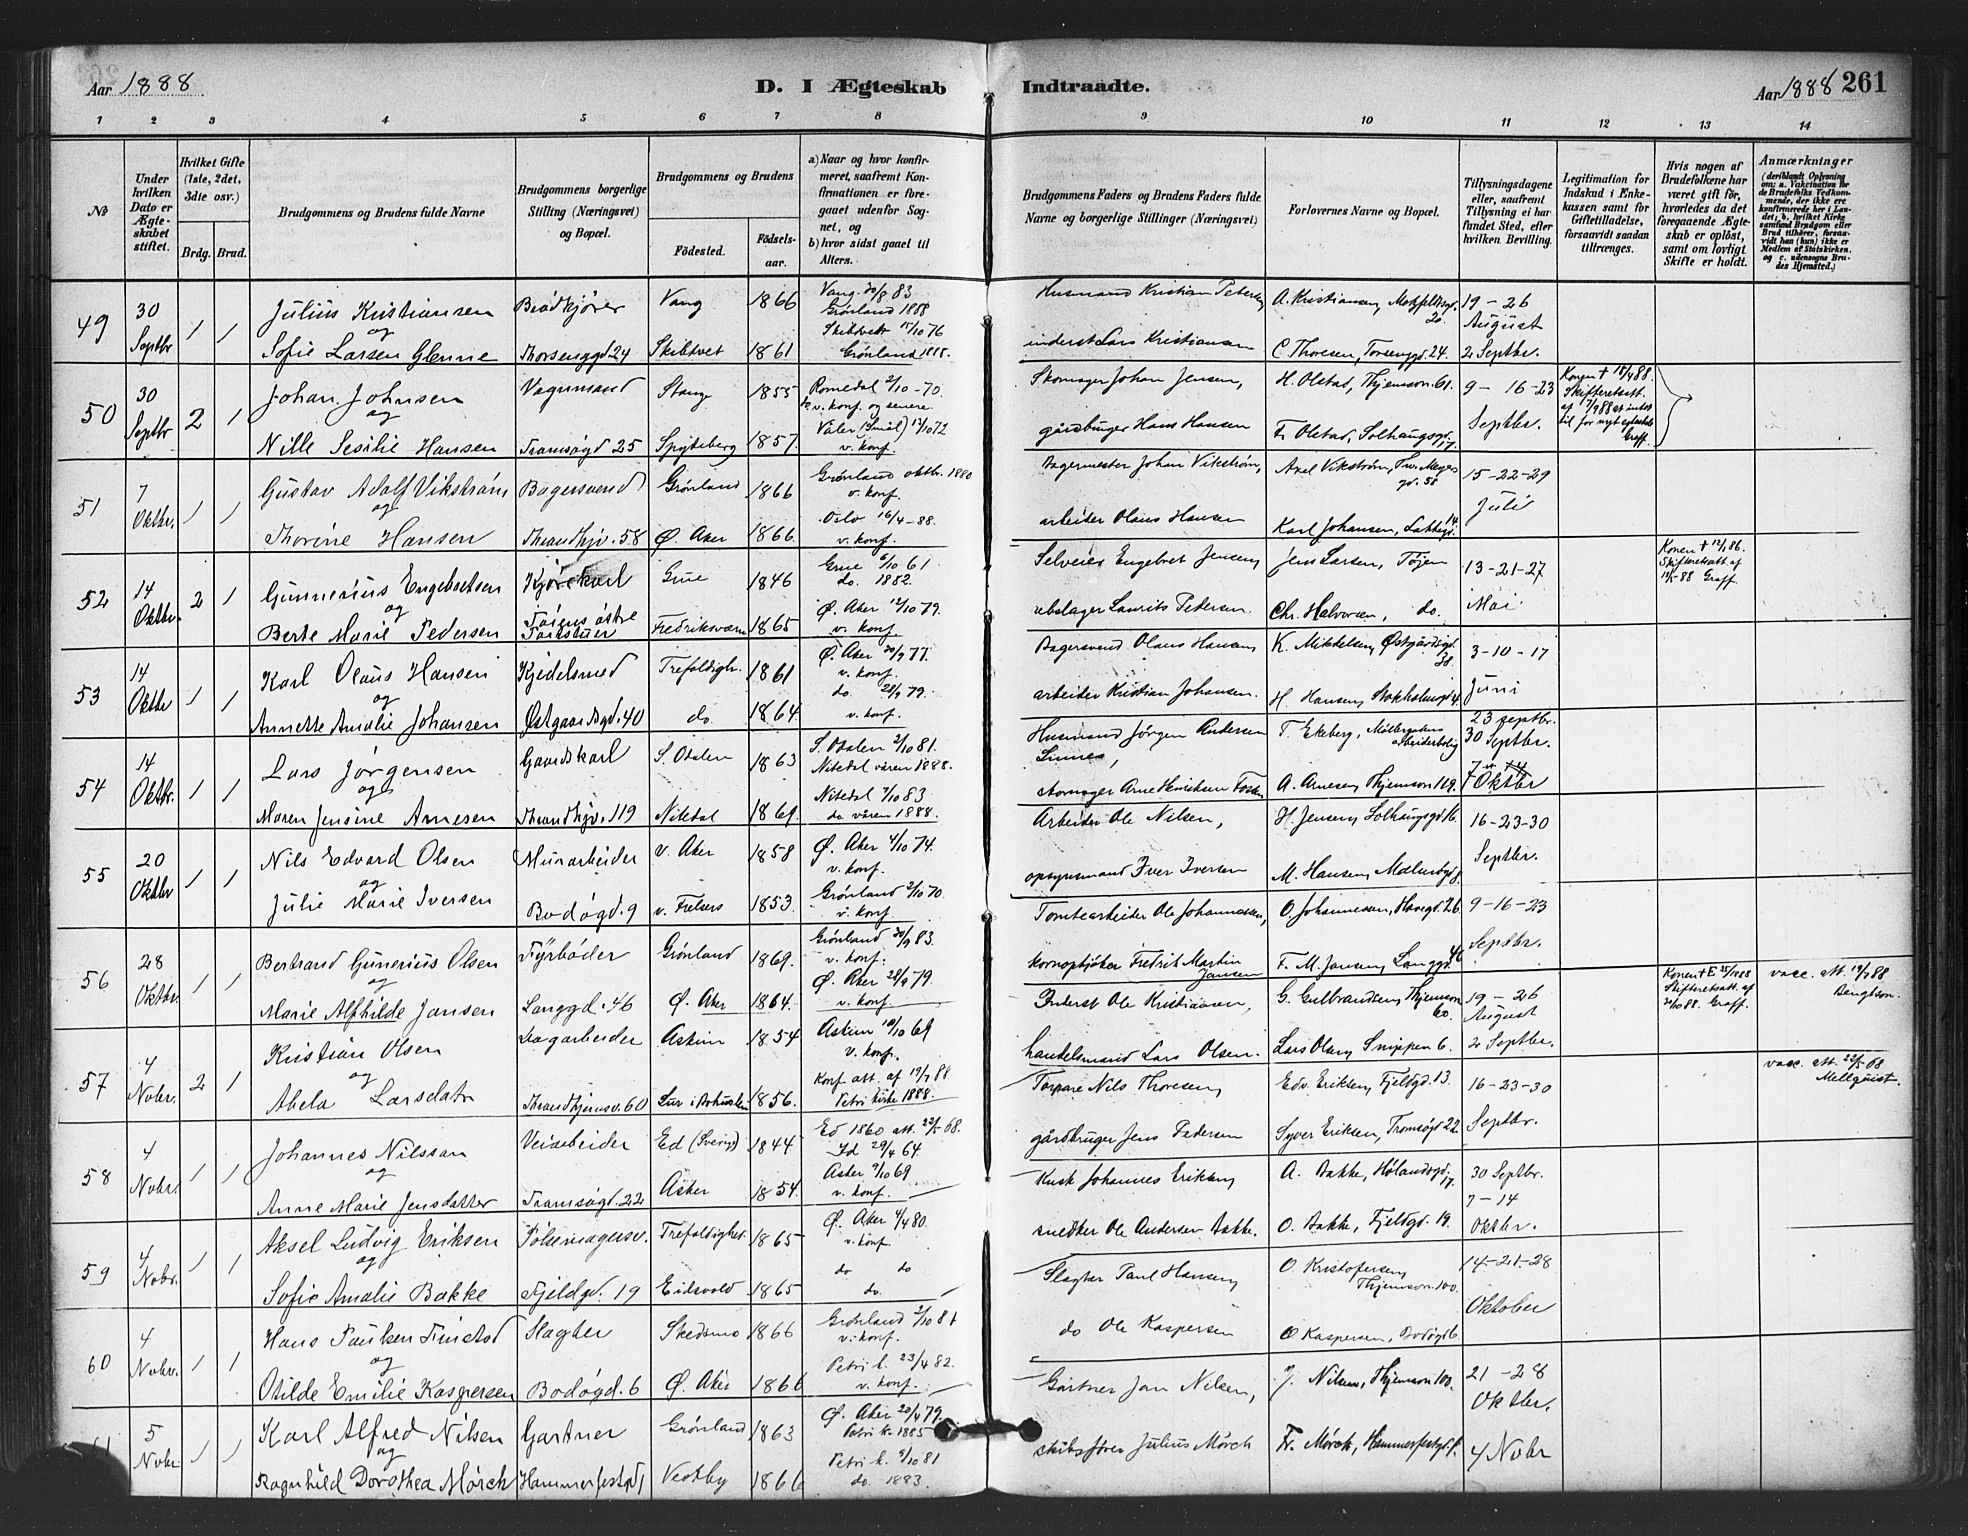 Aar 1888
D. I Ægteskab
Indtraadte.
Aar 1888 261
1 2 3 4 5 6 7 8 9 10 11 12 13 14
No
Under hvilken Dato er Ægteskabet stiftet.
Hvilket Gifte (1ste, 2det, 3die osv.)
Brdg. Brud.
Brudgommens og Brudens fulde Navne
Brudgommens borgerlige Stilling (Næringsvei) og Bopæl.
Brudgommens og Brudens
Födested. Födselsaar.
a) Naar og hvor konfirmeret, saafremt Konfirmationen er foregaaet udenfor Sognet, og
b) hvor sidst gaaet til Alters.
Brudgommens Faders og Brudens Faders fulde Navne og borgerlige Stillinger (Næringsvei)
Forlovernes Navne og Bopæl.
Tillysningsdagene eller, saafremt Tillysning ei har fundet Sted, efter hvilken Bevilling.
Legitimation for Indskud i Enkekassen samt for Giftetilladelse, forsaavidt saadan tiltrænges.
Hvis nogen af Brudefolkene har været gift før, hvorledes da det foregaaende Ægteskab er oplöst, samt om lovligt Skifte er holdt.
Anmærkninger (deriblandt Oplysning om: a. Vakcination for de Brudefolks Vedkommende, der ikke ere konfirmerede her i Landet; b. hvilket Kirkesamfund Brudgom eller Brud tilhører, forsaavidt han (hun) ikke er Medlem af Statskirken. og c. udensogns Brudes Hjemsted.)
49 30 Septbr 1 1 Julius Kristiansen Brödkjörer Vang 1866 Vang 30/8 83 Grønland 1888
og
Sofie Larsen Glenne Thorsenggd 24 Skibtvet 1861 Skibtvett 15/10 76 Grønland 1888.
Husmand Kristian Petersen A. Kristiansen, 19 - 26 August
inderst Lars Kristiansen C. Thoresen, Torsenggd. 24. 2 Septbr.
50 30 Septbr 2 1 Johan Johnsen Vognmand Stange 1855 Romedal 2/10 - 70. v. konf. og senere
og
Nille Sesilie Hansen Tromsøgd 25 Spydeberg 1857. Våler (Smål) 13/10 72 v. konf.
Skomager Johan Jensen, H. Olstad, Thjemsvn 61. 9 - 16 - 23 Septbr. Konen † 18/4 88. Skifteretsatt. af 7/9 88 at intet til for nyt egteskab Graff.
gårdbruger Hans Hansen Fr. Olstad, Solhaugsgd. 17.
51 7 Oktbr. 1 1 Gustav Adolf Vikström Bagersvend Grønland 1866 Grønland oktbr. 1880 v. konf.
og
Thorine Hansen Thrandhjv. 58 Ø. Aker 1866. Oslo 16/4 - 88. v. konf.
Bagermester Johan Vikstrøm, Axel Vikstrøm, Thv. Meyers gd. 58 15 - 22 - 29 Juli
arbeider Olaus Hansen Karl Johansen, Lakkegd. 14.
52 14 Oktbr. 2 1 Gunnerius Engebretsen Kjörekarl Grue 1846 Grue 6/10 61. do. 1882.
og
Berte Marie Pedersen Töiens østre Fredriksværn 1865 Ø. Aker 12/10 79. v. konf.
Selveier Engebret Jensen Jens Larsen, Töjen 13 - 21 - 27 Mai Konen † 12/1 86. Skifteretsatt. af 88 Graff
Laurits Pedersen Chr. Halvorsen, do.
53 14 Oktbr 1 1 Karl Olaus Hansen Kjedelsmed Trefoldigh. 1861 Ø. Aker 30/9 77. v. konf.
og
Annette Amalie Johansen Østgaardsgd. 40 do. 1864. do. 28/9 79. v. konf.
Bagersvend Olaus Hansen K. Mikkelsen, Østgårdsgd. 38. 3 - 10 - 17 Juni
arbeider Kristian Johansen. H. Hansen, Stokholmsgd 4.
54 14 Oktbr. 1 1 Lars Jørgensen Gaardskarl S. Odalen 1863 S. Odalen 2/10 81. Nitedal våren 1888.
og
Maren Jensine Arnesen Thrandhjv. 119 Nitedal 1869. Nitedal 7/10 83 do våren 1888.
Husmand Jørgen Andersen T. Ekeberg, Møllergatens arbeiderbolig 23 septbr. 30 Septbr.
skomager Arne Henriksen A. Arnesen, Thjemsvn 119. 7 Oktbr
55 20 Oktbr 1 1 Nils Edvard Olsen Murarbeider V. Aker 1858 Ø. Aker 4/10 74. v. konf.
og
Julie Marie Iversen Bodögd. 9 1853. Grønland 2/10 70. v. konf.
Arbeider Ole Nilsen, H. Jensen, Solhaugsgd 16. 16 - 23 - 30 Septbr.
opsynsmand Iver Iversen M. Hansen, Malmögd 8.
56 28 Oktbr. 1 1 Bertrand Gunerius Olsen Fyrböder Grønland 1869. Grønland 30/9 83. v. konf.
og
Marie Alfhilde Jansen Langgd. 46 Ø. Aker 1864. Ø. Aker 28/9 79. v. konf.
Tomtearbeider Ole Johannessen, O. Johannesen, Havegd. 26. 9 - 16 - 23 Septbr.
kornopkjøber Fredrik Martin Jansen F. M. Jansen, Langgd. 46
57 4 Nobr. 2 1 Kristian Olsen Dagarbeider Askim 1854 Askim 10/10 69 v. konf.
og
Abela Larsdatr Thrandhjemsv. 60 Lur i Bohuslen 1856. Konf. att. af 19/7 88 Petri kirke 1888.
Inderst Ole Kristiansen, G. Gulbrandsen, Thjemsvn 60. 19 - 26 August Konen † 1888 Skifteretsatt. af 88. Graff. vacc. att. 19/7 88 Bengtson.
handelsmand Lars Olsen. Lars Olsen, Snippen 6. 2 Septbr.
58 4 Nobr. 1 1 Johannes Nilsson Veiarbeider Ed (Sverige) 1844 Ed 1860 att. 22/5 68. Id 29/4 64
og
Anne Marie Jensdatter Tromsögd. 22 Asker 1854. Asker 9/10 69 v. konf.
Torpare Nils Thoresen, Edv. Eriksen, Fjeldgd. 13. 16 - 23 - 30 Septbr. vacc. att. 22/5 68 Mellquist.
gårdbruger Jens Pedersen Syver Eriksen, Tromsøgd 22.
59 4 Nobr. 1 1 Aksel Ludvig Eriksen Pölsemagersv. Trefoldighed. 1865 Ø. Aker 4/4 80. v. konf
og
Sofie Amalie Bakke Fjeldgd. 19 Eidsvold 1865 do do do.
Kusk Johannes Eriksen, A. Bakke, Hølandsgd. 17. 30 Septbr. 7 - 14 Oktbr.
snedker Ole Andersen Bakke. O. Bakke, Fjeldgd. 19.
60 4 Nobr. 1 1 Hans Paulsen Finstad Slagter Skedsmo 1866 Grønland 2/10 81 v. konf.
og
Otilde Emilie Kaspersen Bodøgd. 6 Ø. Aker 1866 Petri k. 23/4 82. v. konf.
Slagter Paul Hansen, O. Kristofersen, Thjemsvn. 100. 14 - 21 - 28 Oktober
do Ole Kaspersen O. Kaspersen, Bodøgd 6.
5 Nobr 1 1 Karl Alfred Nilsen Gartner Grønland 1863 Ø. Aker 20/4 79. Petri k. 1885
og
Ragnhild Dorothea Mörch Hammerfestgd 1 Vestby 1866 Petri k. 9/10 81 do. 1883.
Gartner Jan Nilsen, J. Nilsen, Thjemsvn 100. 21 - 28 Oktbr.
skibsfører Julius Mörch Fr. Mørch, Hammerfestgd 1. 4 Nobr